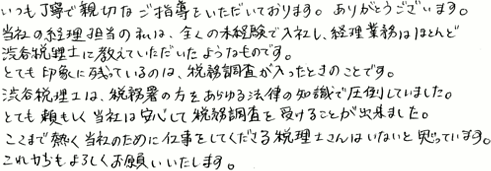 いつも丁寧で親切なご指導をいただいております。ありがとうございます。
当社の経理担当の私は、全くの未経験で入社し、経理業務はほとんど
渋谷税理士に教えていただいたようなものです。
とても印象に残っているのは、税務調査が入ったときのことです。
渋谷税理士は、税務署の方をあらゆる法律の知識で圧倒していました。
とても頼もしく当社は安心して税務調査を受けることが出来ました。
ここまで熱く当社のために仕事をしてくださる税理士さんはいないと思っています。
これからもよろしくお願いいたします。